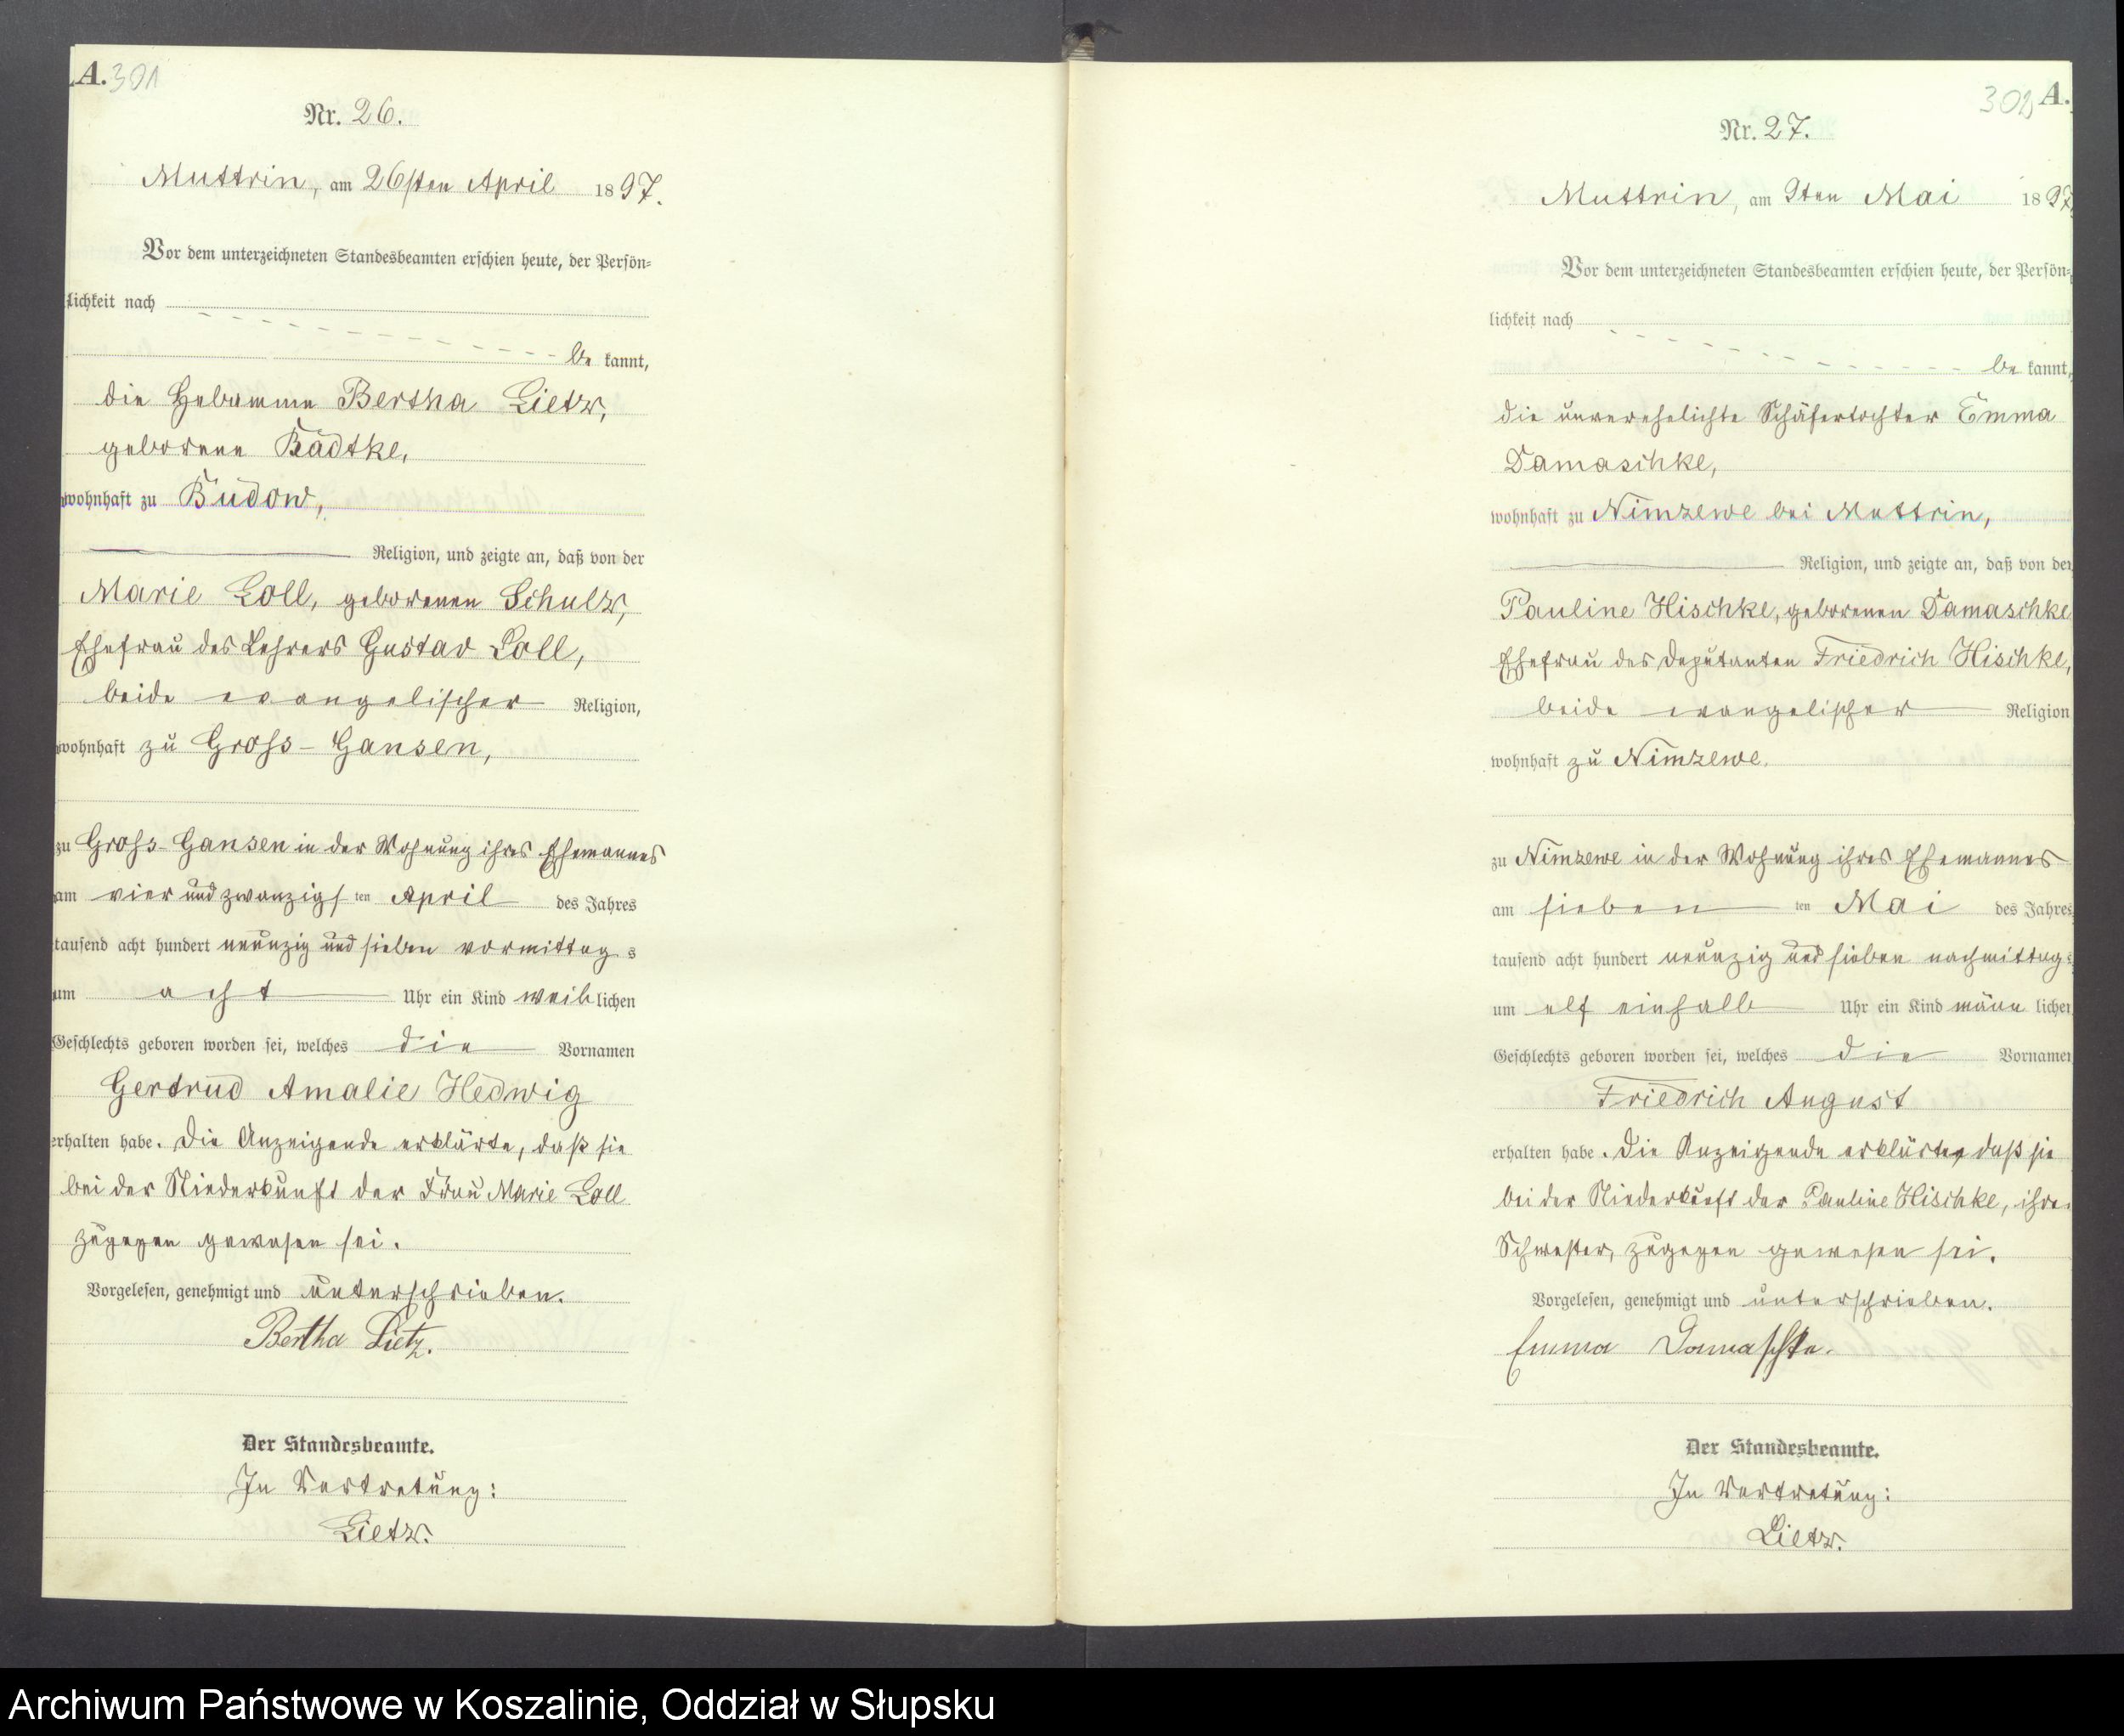 A. 301
Nr. 26.
Muttrin, am 26sten April 1897.
Vor dem unterzeichneten Standesbeamten erschien heute, der Persön=
lichkeit nach
be kannt,
die Hebamme Bertha Lietz,
geborene Radtke,
wohnhaft zu Budow,
Religion, und zeigte an, daß von der
Marie Loll, geborenen Schulz,
Ehefrau des Lehrers Gustav Loll,
beide evangelischer Religion,
wohnhaft zu Gross-Gansen,
zu Gross-Gansen in der Wohnung ihres Ehemannes
am vier und zwanzigs ten April des Jahres
tausend acht hundert neunzig und sieben vormittag s
um acht Uhr ein Kind weib lichen
Geschlechts geboren worden sei, welches die Vornamen
Gertrud Amalie Hedwig
erhalten habe. Die Anzeigende erklärte, daß sie
bei der Niederkunft der Frau Marie Loll
zugegen gewesen sei.
Vorgelesen, genehmigt und unterschrieben.
Bertha Lietz.
Der Standesbeamte.
In Vertretung:
Lietz.
302 A.
Nr. 27.
Muttrin, am 9ten Mai 1897
Vor dem unterzeichneten Standesbeamten erschien heute, der Persön=
lichkeit nach
be kannt,
die unverehelichte Schäfertochter Emma
Damaschke,
wohnhaft zu Nimzewe bei Muttrin,
Religion, und zeigte an, daß von der
Pauline Hischke, geborenen Damaschke
Ehefrau des Deputanten Friedrich Hischke,
beide evangelischer Religion
wohnhaft zu Nimzewe.
zu Nimzewe in der Wohnung ihres Ehemannes
am sieben ten Mai des Jahres
tausend acht hundert neunzig und sieben nachmittag s
um elf einhalb Uhr ein Kind männ lichen
Geschlechts geboren worden sei, welches die Vornamen
Friedrich August
erhalten habe. Die Anzeigende erklärte, daß sie
bei der Niederkunft der Pauline Hischke, ihrer
Schwester, zugegen gewesen sei.
Vorgelesen, genehmigt und unterschrieben.
Emma Damaschke.
Der Standesbeamte.
In Vertretung:
Lietz.
Archiwum Państwowe w Koszalinie, Oddział w Słupsku